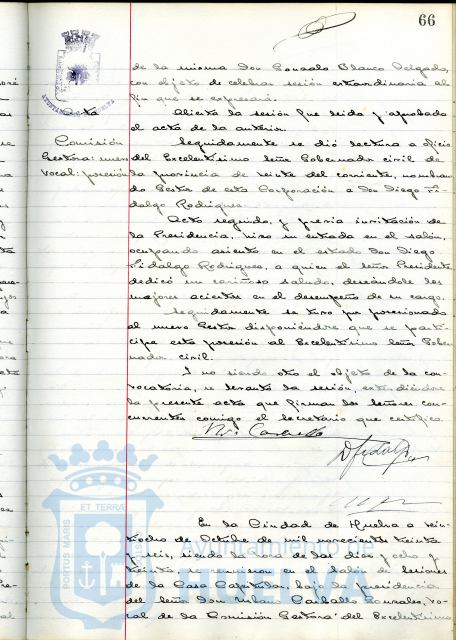 66
de la misma Don Gonzalo Blanco Delgado,
con objeto de celebrar sesión extraordinaria al
fin que se expresará.
Acta
Abierta la sesión fue leida y aprobada
el acta de la anterior.
Comisión
Gestora: nuevo
vocal: posesión
Seguidamente se dió lectura a oficio
del Excelentísimo Señor Gobernador civil de
la provincia de veinte del corriente, nombran
do Gestor de esta Corporación a Don Diego Fi-
dalgo Rodriguez.
Acto seguido, y previa invitación de
la Presidencia, hizo su entrada en el salón,
ocupando asiento en el estrado Don Diego
Fidalgo Rodriguez, a quien el Señor Presidente
dedicó un cariñoso saludo, deseándole los
mejores aciertos en el desempeño de su cargo.
Seguidamente se tuvo por posesionado
al nuevo Gestor disponiéndose que se parti-
cipe esta posesión al Excelentísimo Señor Gober
nador civil.
Y no siendo otro el objeto de la con-
vocatoria, se levantó la sesión, extendiéndose
la presente acta que firman los señores con-
currentes conmigo el Secretario que certifico.
D Fidalgo
En la Ciudad de Huelva a vein-
tiocho de Octubre de mil novecientos treinta
y seis, siendo la hora de las diez y ocho y
treinta, se reunieron en el Salón de sesiones
de la Casa Capitular bajo la presidencia
del Señor Don Urbano Carballo Gonzales, Vo-
cal de la Comisión Gestora del Excelentísimo
PORTUS MARIS
ET TERRÆ
Ayuntamiento de
HUELVA